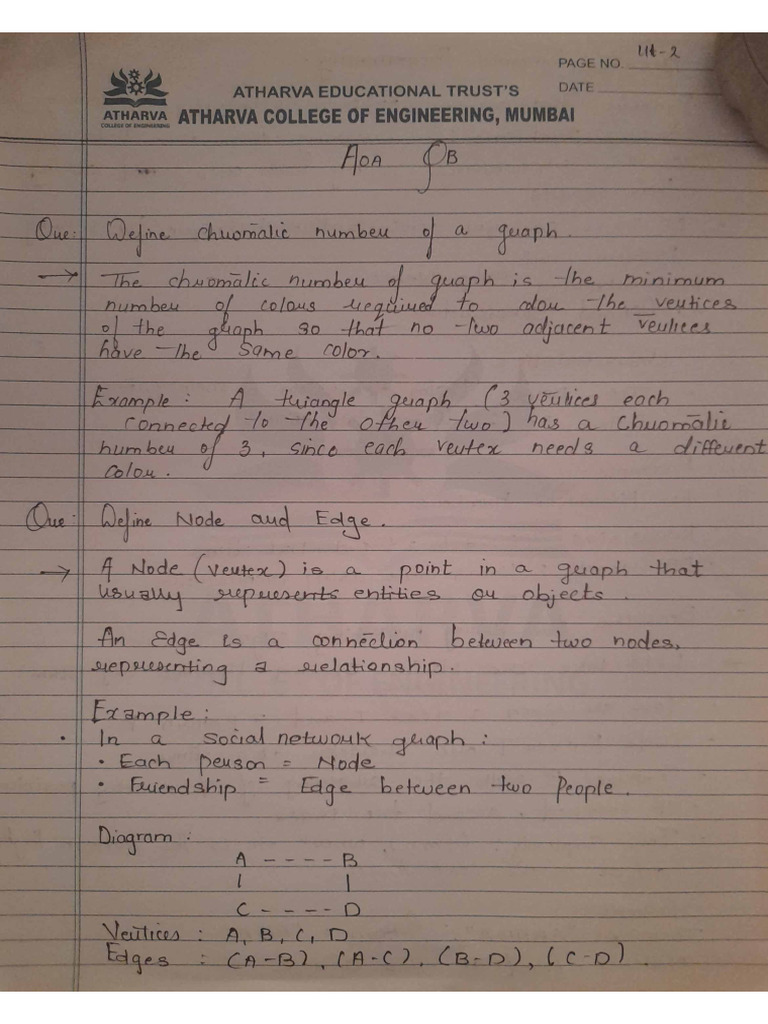 PAGE NO. Ut-2
DATE
ATHARVA EDUCATIONAL TRUST'S
ATHARVA COLLEGE OF ENGINEERING, MUMBAI
ATHARVA
COLLEGE OF ENGINEERING
AOA QB
Que: Define chromatic number of a graph.
→ The chromatic number of graph is the minimum
number of colours required to colour the vertices
of the graph so that no two adjacent vertices
have the same color.
Example: A triangle graph (3 vertices each
connected to the other two) has a chromatic
number of 3, since each vertex needs a different
colour.
Que: Define Node and Edge.
→ A Node (vertex) is a point in a graph that
usually represents entities or objects.
An Edge is a connection between two nodes,
representing a relationship.
Example:
• In a social network graph:
• Each person = Node
• Friendship = Edge between two People.
Diagram:
A - - - - B
| |
C - - - - D
Vertices : A, B, C, D
Edges : (A-B), (A-C), (B-D), (C-D).